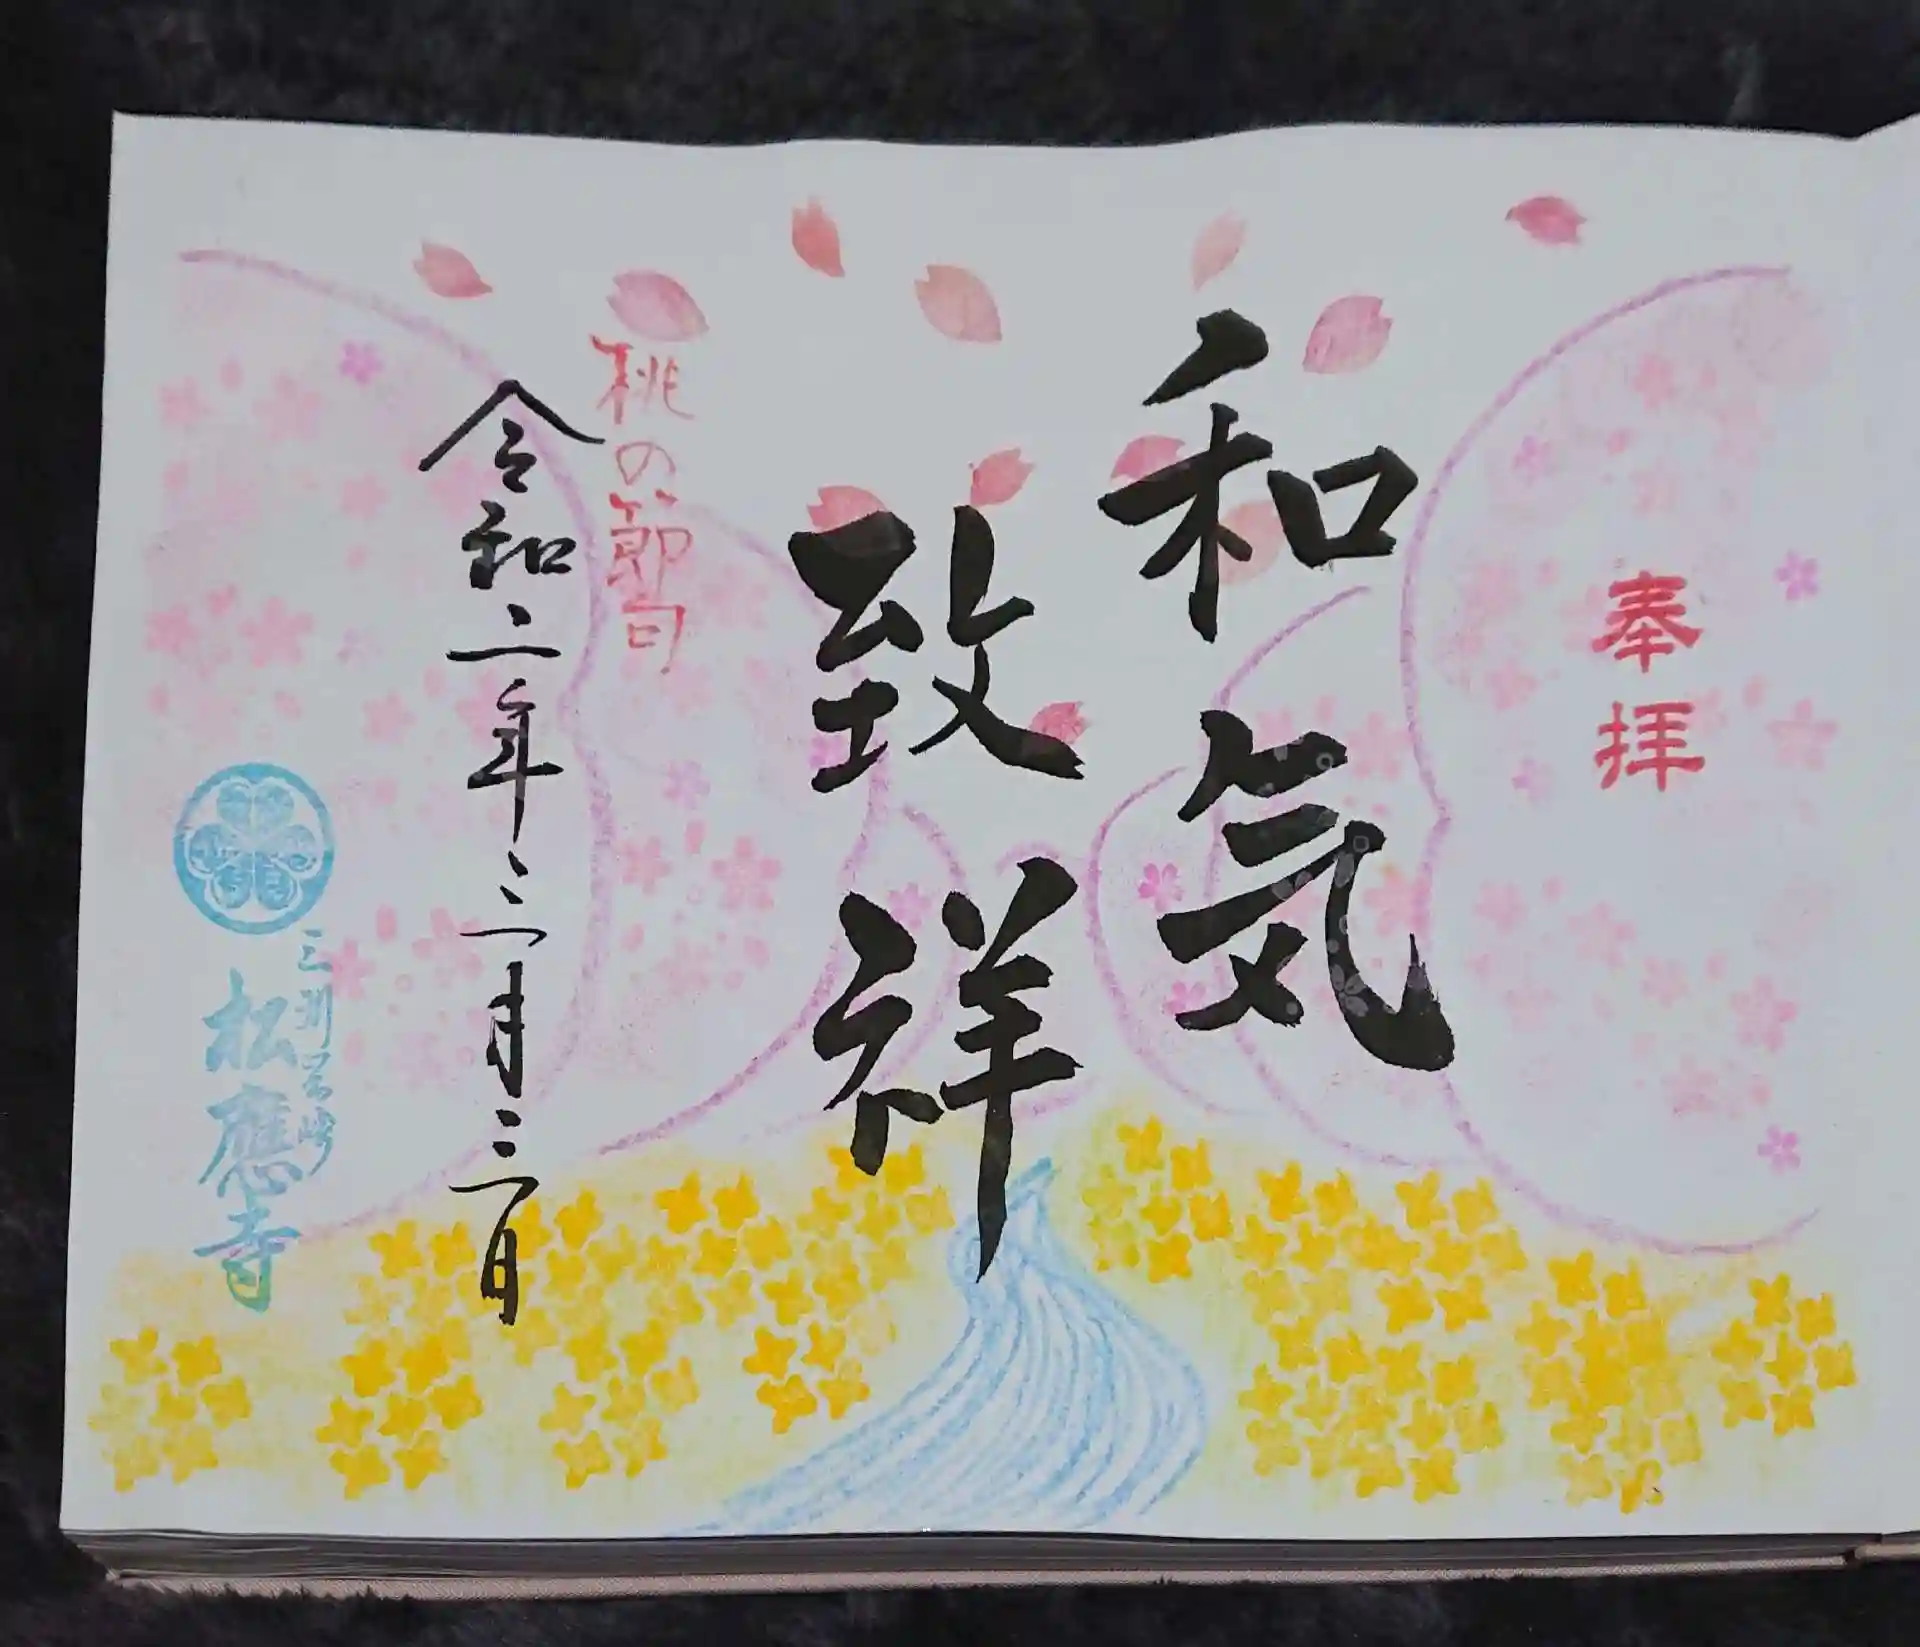 奉拝
和気
致祥
桃の節句
令和二年三月三日
三州岡崎
松應寺